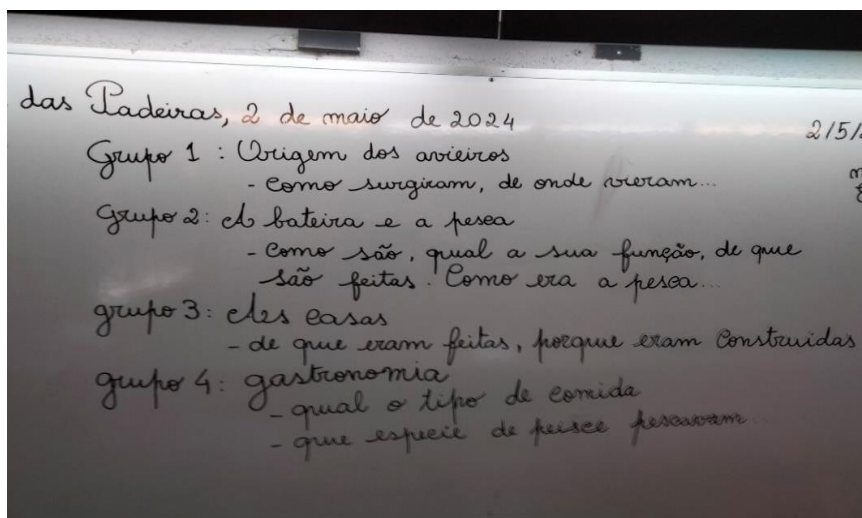 das Padeiras, 2 de maio de 2024
2/5/
Grupo 1 : Origem dos avieiros
- Como surgiram, de onde vieram...
Grupo 2: A bateira e a pesca
- Como são, qual a sua função, de que
são feitas. Como era a pesca...
grupo 3: As casas
- de que eram feitas, porque eram construidas
grupo 4: gastronomia
- qual o tipo de comida
- que especie de peisce pescavam...